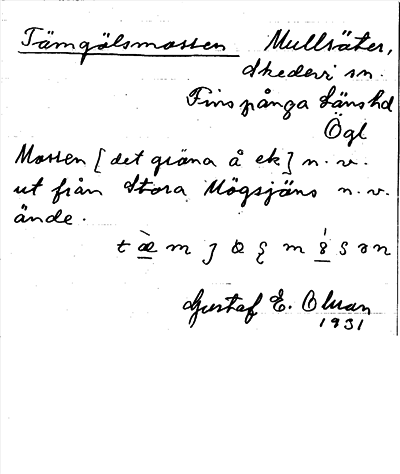 Tämgölsmossen Mullsäter,
Skedevi sn.
Finspånga länshd
Ögl
Mossen [det gröna å ek] n. v.
ut från Stora Mögsjöns n. v.
ände.
Gustaf E. Olsson
1931